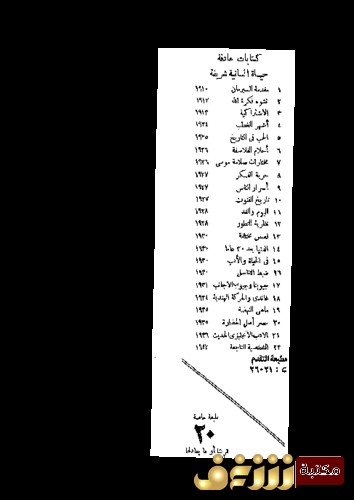 كتابات هادفة
حياة انسانية شريفة
١ مقدمة السبرمان ١٩١٠
٢ نشوء فكرة الله ١٩١٢
٣ الاشتراكية ١٩١٣
٤ أشهر الخطب ١٩٢٤
٥ الحب فى التاريخ ١٩٢٥
٦ أحلام الفلاسفة ١٩٢٦
٧ مختارات سلامة موسى ١٩٢٦
٨ حرية الفكر ١٩٢٧
٩ أسرار النفس ١٩٢٧
١٠ تاريخ الفنون ١٩٢٧
١١ اليوم والغد ١٩٢٨
١٢ نظرية التطور ١٩٢٨
١٣ قصص مختلفة ١٩٣٠
١٤ الدنيا بعد ٣٠ عاما ١٩٣٠
١٥ فى الحياة والأدب ١٩٣٠
١٦ ضبط التناسل ١٩٣٠
١٧ جيوبنا وجيوب الأجانب ١٩٣١
١٨ غاندى والحركة الهندية ١٩٣٤
١٩ ماهى النهضة ١٩٣٥
٢٠ مصر أصل الحضارة ١٩٣٥
٢١ الأدب الانجليزى الحديث ١٩٣٦
٢٢ الشخصية الناجعة
مطبعة التقدم
ت : ٢١-٢٦
طبعة خاصة
٢٠
قرشا أو ما يعادلها
مكتبة